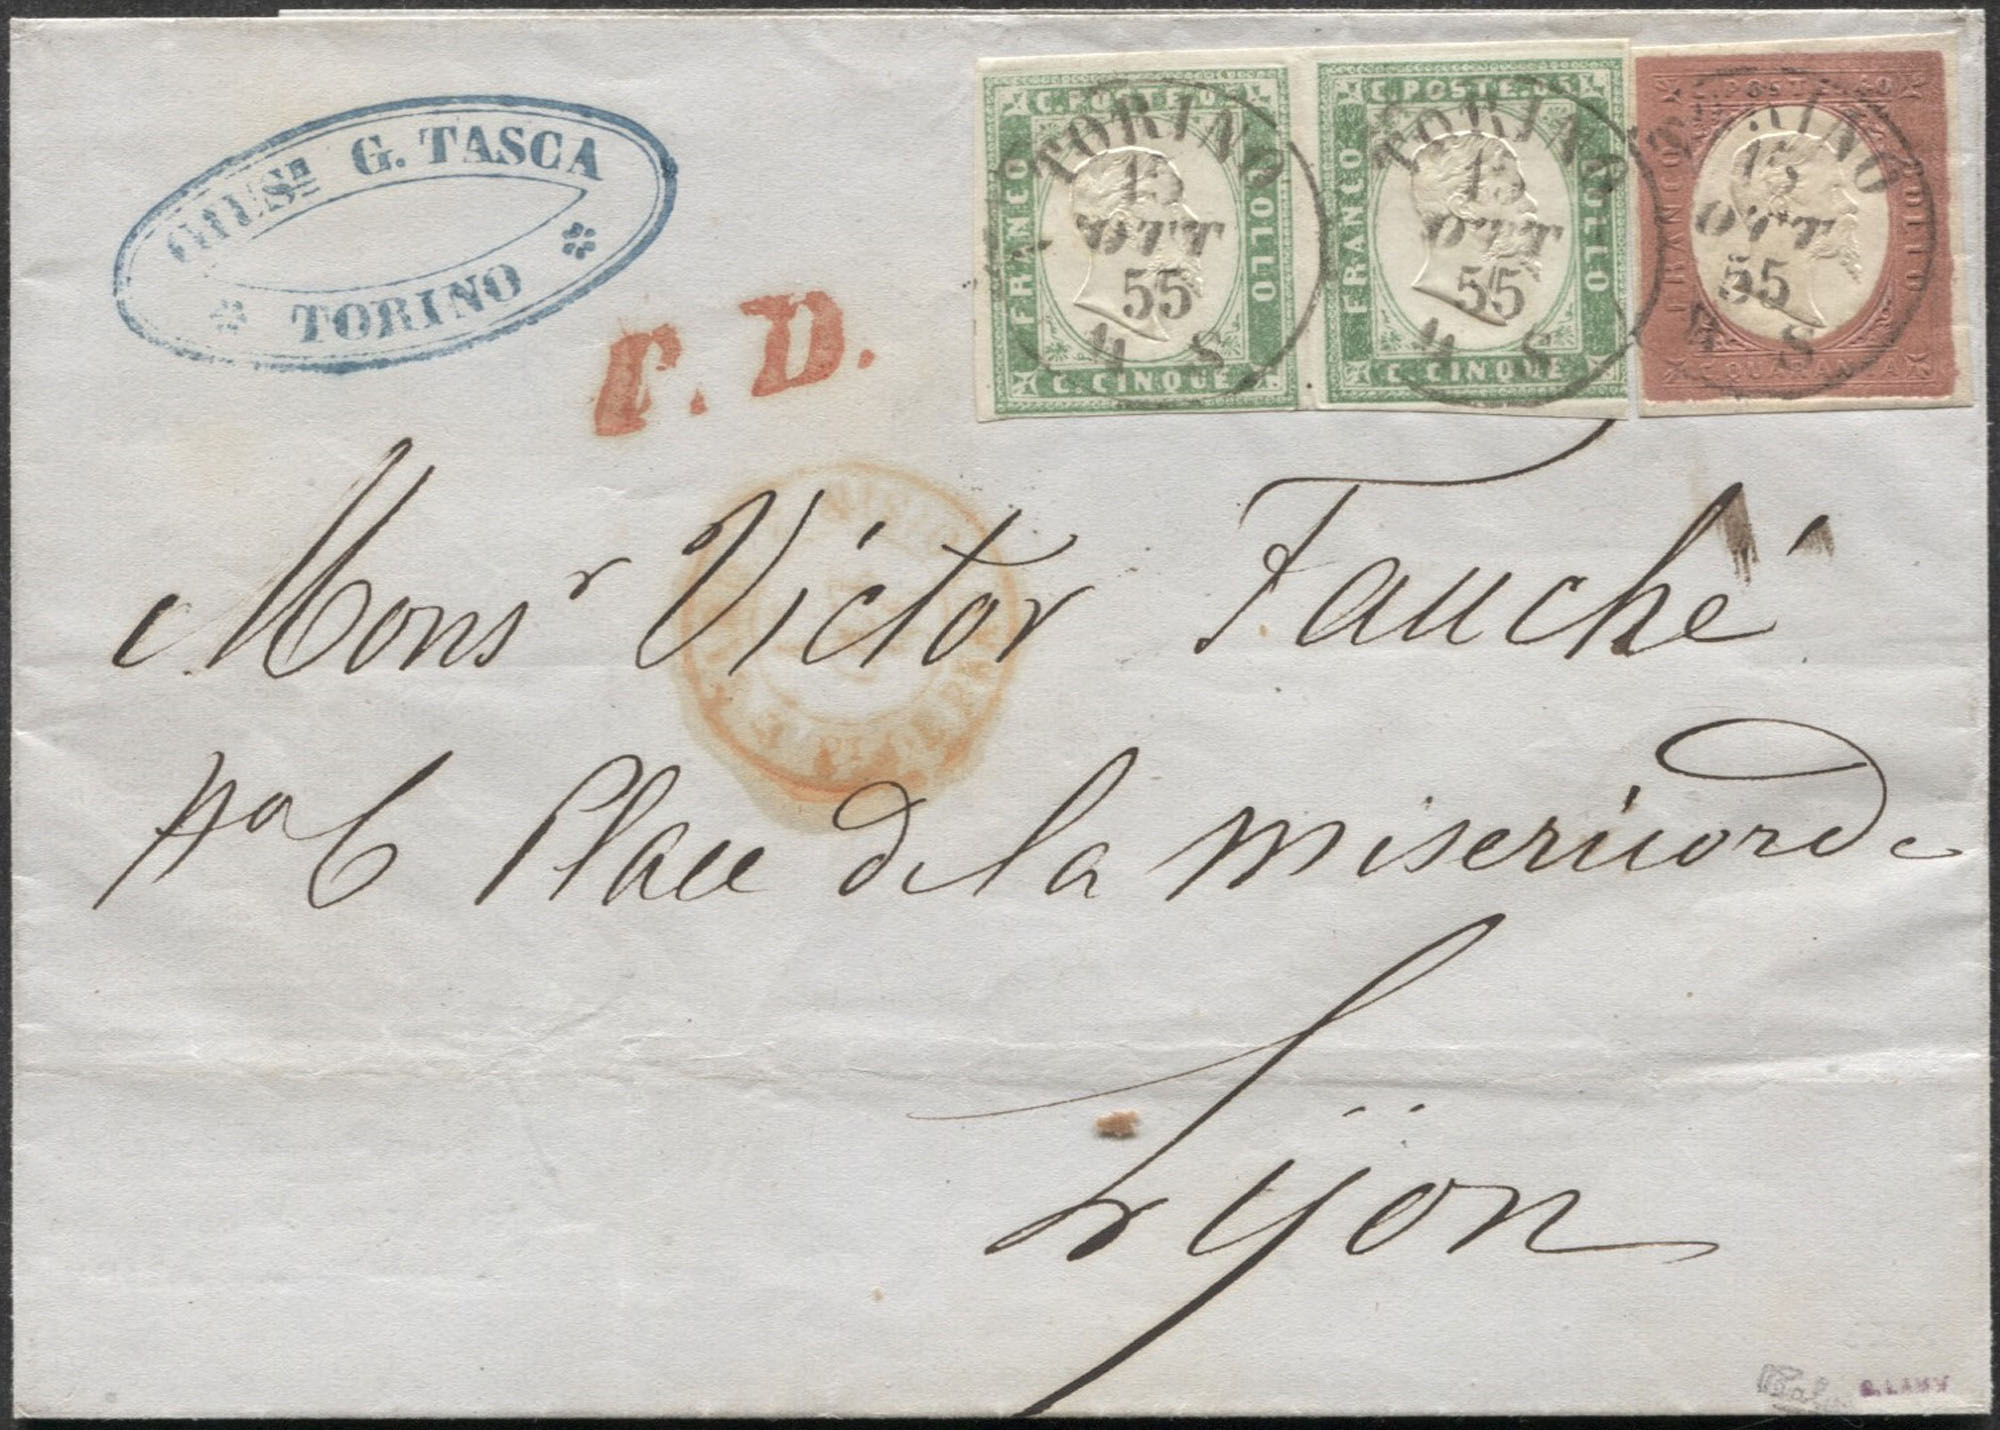 GIUS.e G. TASCA
TORINO
P. D.
C. POSTE. 05
FRANCO
BOLLO
C. CINQUE
TORINO
15
55
S
C. POSTE. 05
FRANCO
BOLLO
C. CINQUE
TORINO
15
55
S
C. POSTE. 40
FRANCO
BOLLO
C. QUARANTA
TORINO
15
55
S
Monsr Victor Fauché
No 6 Place de la misericorde
Lÿon